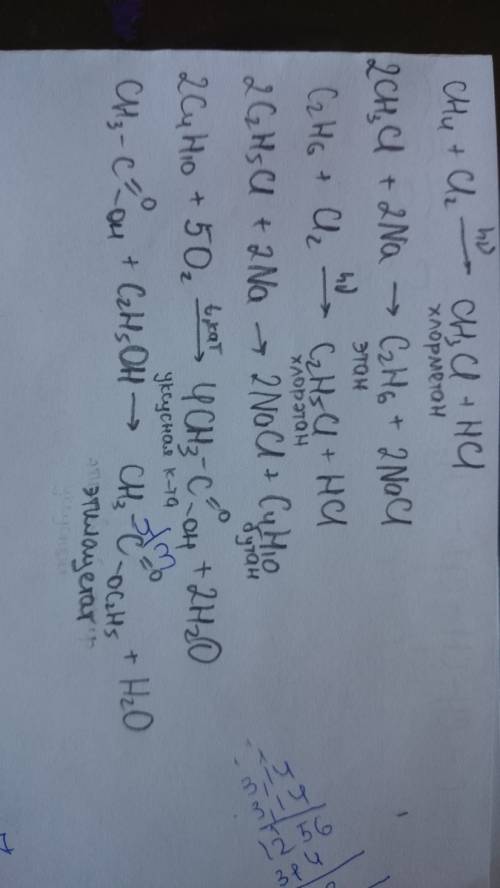 CH4 + Cl2 hν→ CH3Cl + HCl
хлорметан
2CH3Cl + 2Na → C2H6 + 2NaCl
этан
C2H6 + Cl2 hν→ C2H5Cl + HCl
хлорэтан
2C2H5Cl + 2Na → 2NaCl + C4H10
бутан
2C4H10 + 5O2 t,кат→ 4CH3-C=O-OH + 2H2O
уксусная к-та
CH3-C=O-OH + C2H5OH → CH3-C=O-OC2H5 + H2O
этилацетат
56